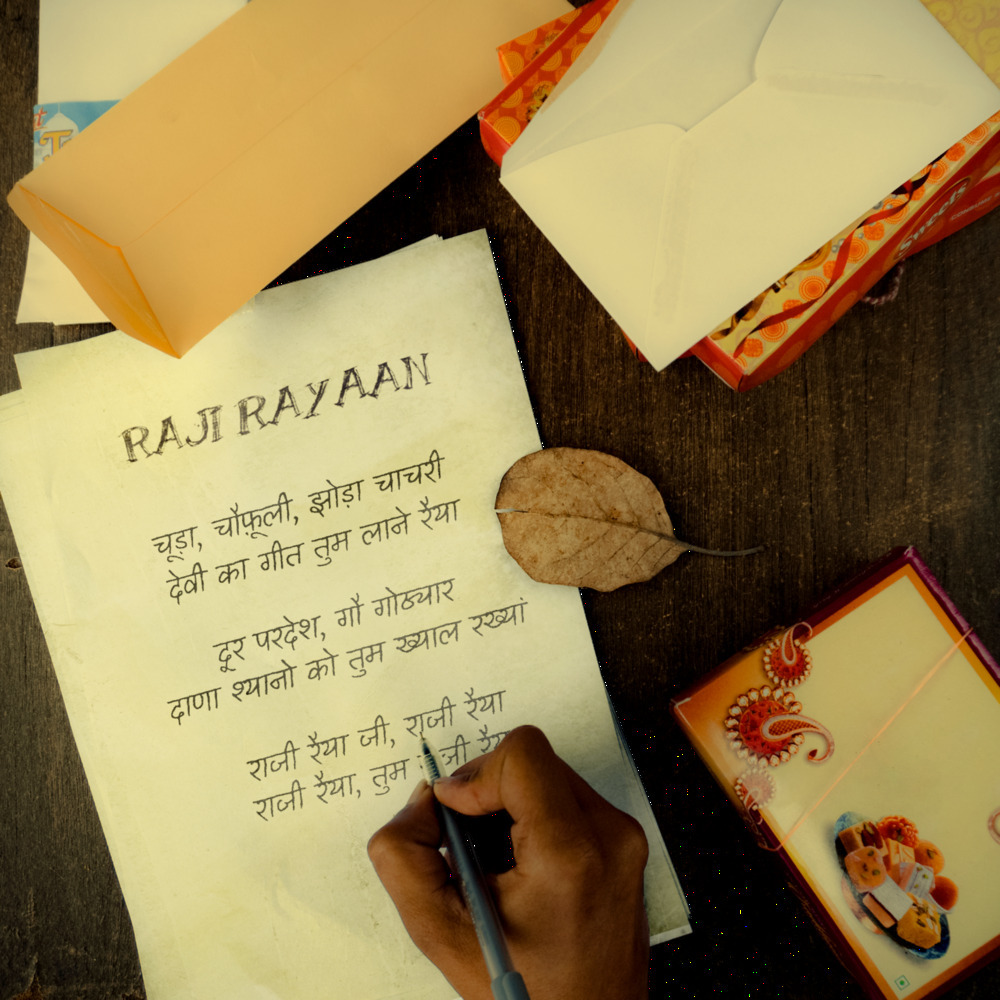 RAJI RAYAAN
चूड़ा, चौफ़ूली, झोड़ा चाचरी
देवी का गीत तुम लाने रैया
दूर परदेश, गौ गोठ्यार
दाणा श्यानो को तुम ख्याल रख्यां
राजी रैया जी, राजी रैया
राजी रैया, तुम
Sweets